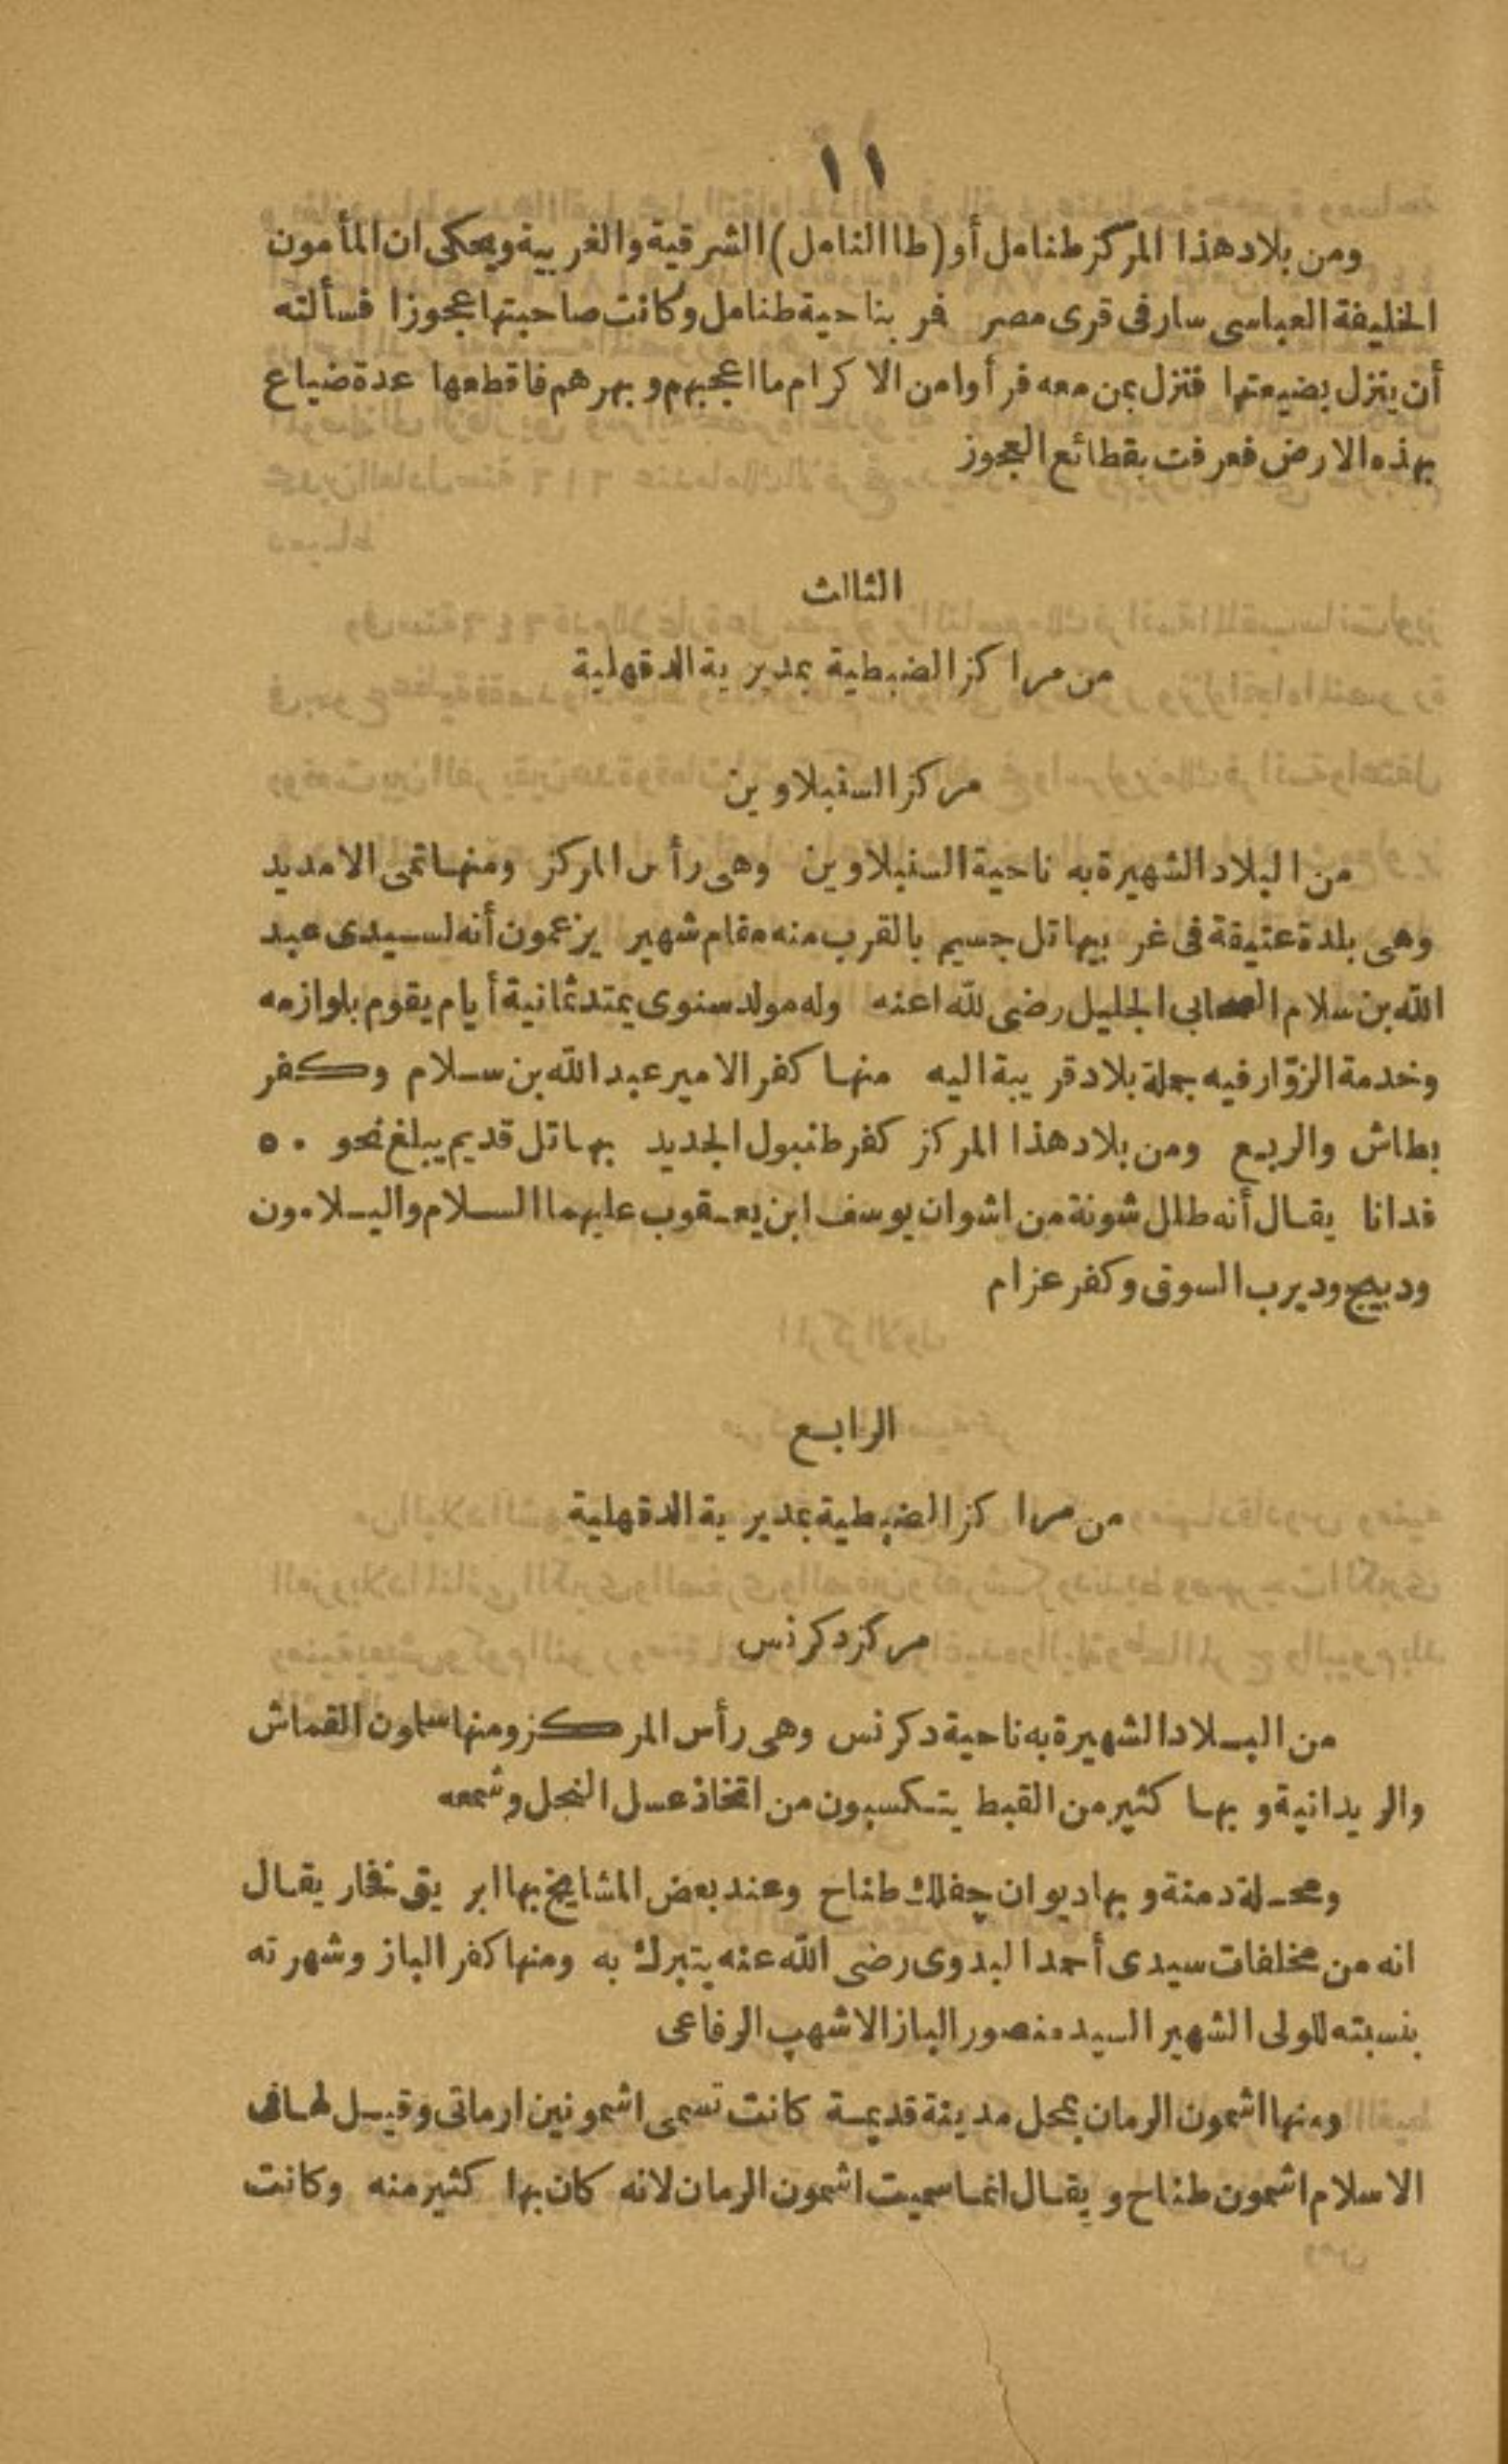 ١١
ومن بلاد هذا المركز طنامل أو (طا النامل) الشرقية والغربية ويحكى ان المأمون
الخليفة العباسى سار فى قرى مصر فمر بناحية طنامل وكانت صاحبتها عجوزا فسألته
أن ينزل بضيعتها فنزل بمن معه فرأوا من الاكرام ما اعجبهم وبهرهم فاقطعها عدة ضياع
بهذه الارض فعرفت بقطائع العجوز
الثالث
من مراكز الضبطية بمديرية الدقهلية
مركز السنبلاوين
من البلاد الشهيرة به ناحية السنبلاوين وهى رأس المركز ومنها تمى الامديد
وهى بلدة عتيقة فى غربيها تل جسيم بالقرب منه مقام شهير يزعمون أنه لسيدى عبد
الله بن سلام الصحابى الجليل رضى لله اعنه وله مولد سنوى يمتد ثمانية أيام يقوم بلوازمه
وخدمة الزوّار فيه جملة بلاد قريبة اليه منها كفر الامير عبد الله بن سلام وكفر
بطاش والربع ومن بلاد هذا المركز كفر طنبول الجديد بها تل قديم يبلغ نحو ٥٠
فدانا يقال أنه طلل شونة من اشوان يوسف ابن يعقوب عليهما السلام والبيلامون
ودبيج وديرب السوق وكفر عزام
الرابع
من مراكز الضبطية بمديرية الدقهلية
مركز دكرنس
من البلاد الشهيرة به ناحية دكرنس وهى رأس المركز ومنها سلمون القماش
والريدانية وبها كثير من القبط يتكسبون من اتخاذ عسل النحل وشمعه
ومحلة دمنة وبها ديوان چفلك طناح وعند بعض المشايخ بها ابريق فخار يقال
انه من مخلفات سيدى أحمد البدوى رضى الله عنه يتبرك به ومنها كفر الباز وشهرته
بنسبته للولى الشهير السيد منصور الباز الاشهب الرفاعى
ومنها اشمون الرمان بمحل مدينة قديمة كانت تسمى اشمونين ارماتى وقيل لها فى
الاسلام اشمون طناح ويقال انما سميت اشمون الرمان لانه كان بها كثير منه وكانت